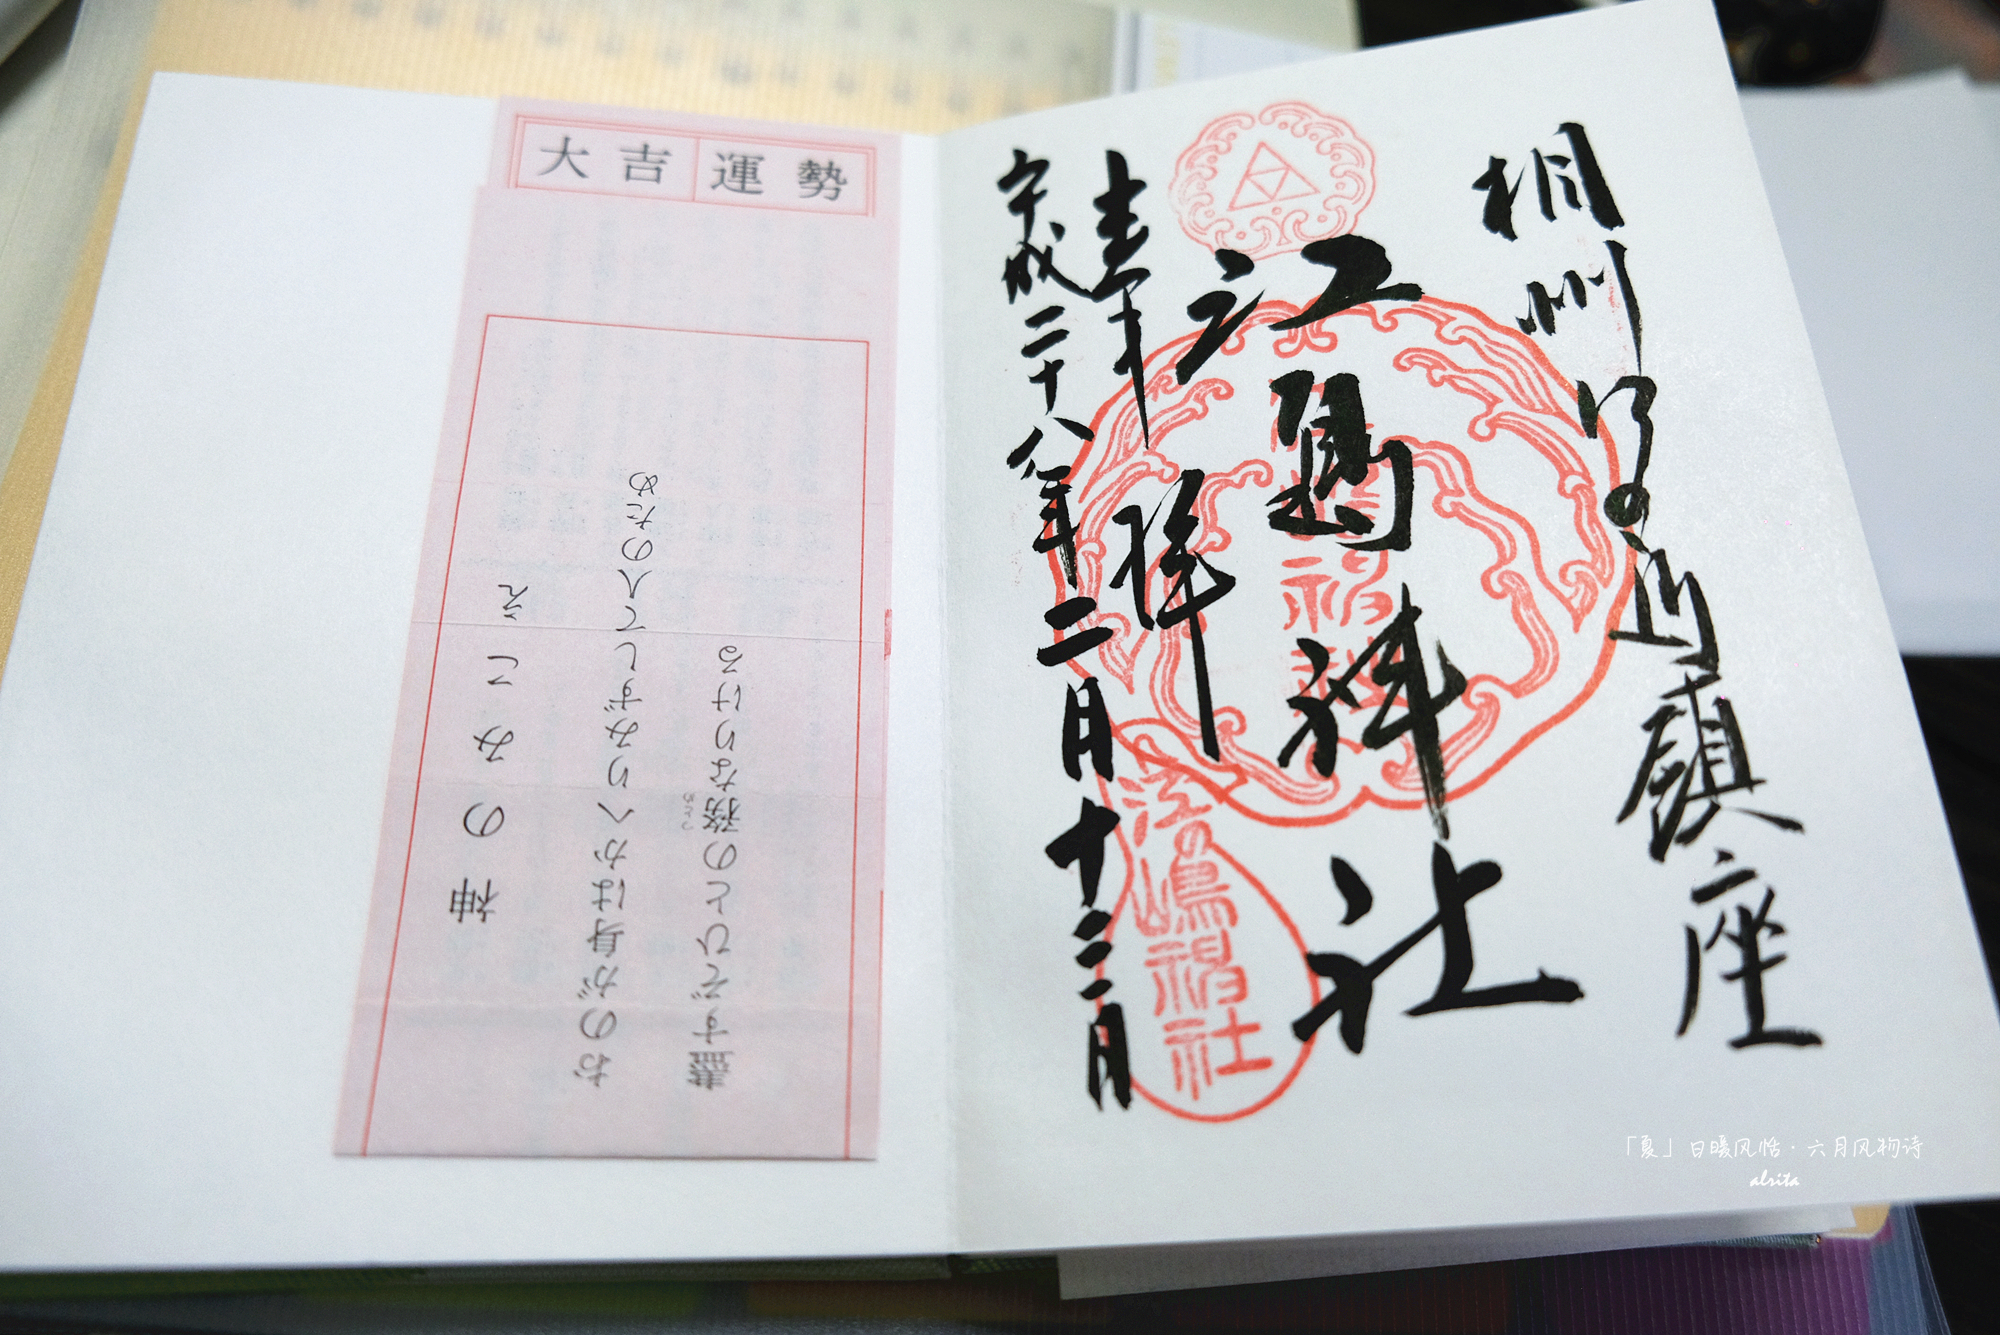 大吉 運勢
神のみこえ
おのが身はかへりみずして人のため
盡すぞひとの務なりける
つとめ
相州江の島鎮座
江島神社
奉拝
平成二十八年二月十二日
江嶋神社
「夏」日暖风恬·六月风物诗
alsita